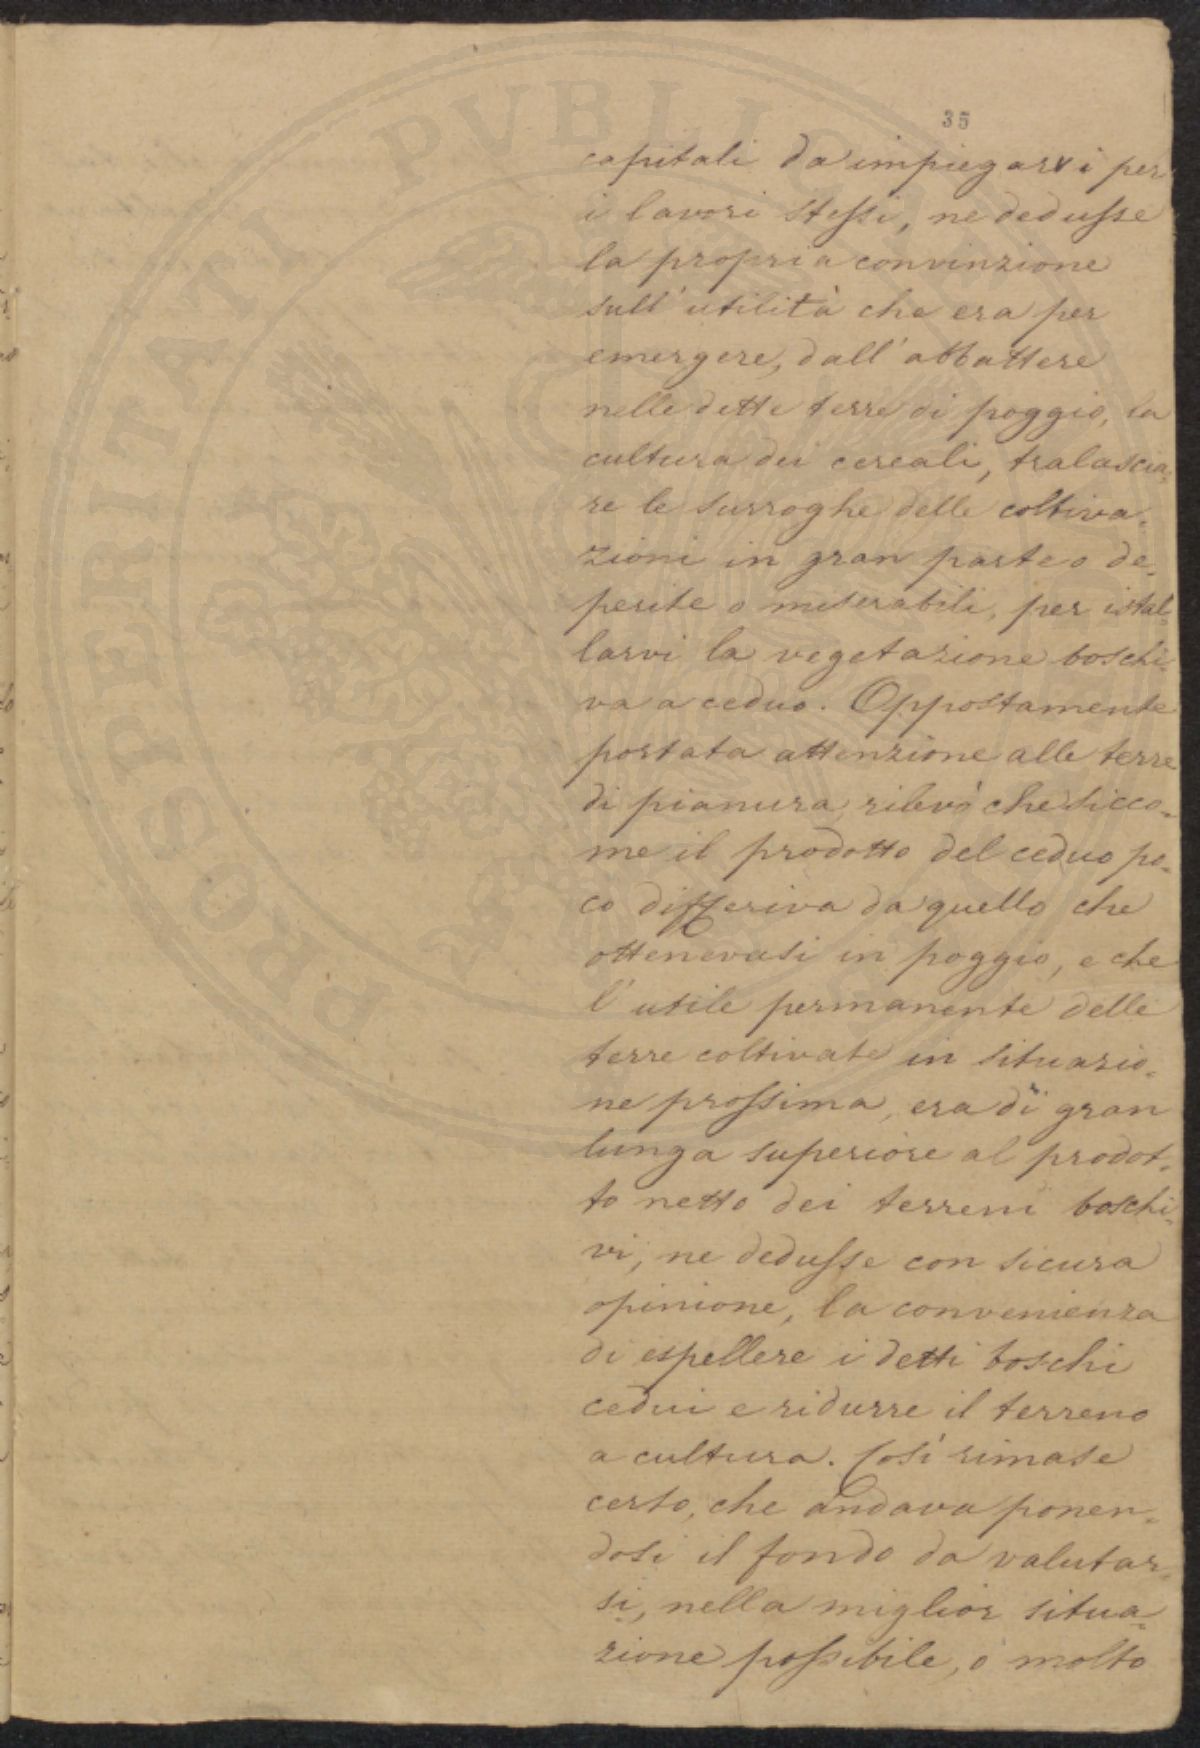 PROSPERITATI PUBLICAE
35
capitali da impiegarvi per
i lavori stessi, ne dedusse
la propria convinzione
sull'utilità che era per
emergere, dall'abbattere
nelle dette terre di poggio, la
cultura dei cereali, tralascia-
re le surroghe delle coltiva-
zioni in gran parte o de-
perite o miserabili, per istal-
larvi la vegetazione boschi-
va a ceduo. Oppostamente
portata attenzione alle terre
di pianura, rilevò che sicco-
me il prodotto del ceduo po-
co differiva da quello che
ottenevasi in poggio, e che
l'utile permanente delle
terre coltivate in situazio-
ne prossima, era di gran
lunga superiore al prodot-
to netto dei terreni boschi-
vi, ne dedusse con sicura
opinione, la convenienza
di espellere i detti boschi
cedui e ridurre il terreno
a cultura. Così rimase
certo, che andava ponen-
dosi il fondo da valutar-
si, nella miglior situa-
zione possibile, o molto